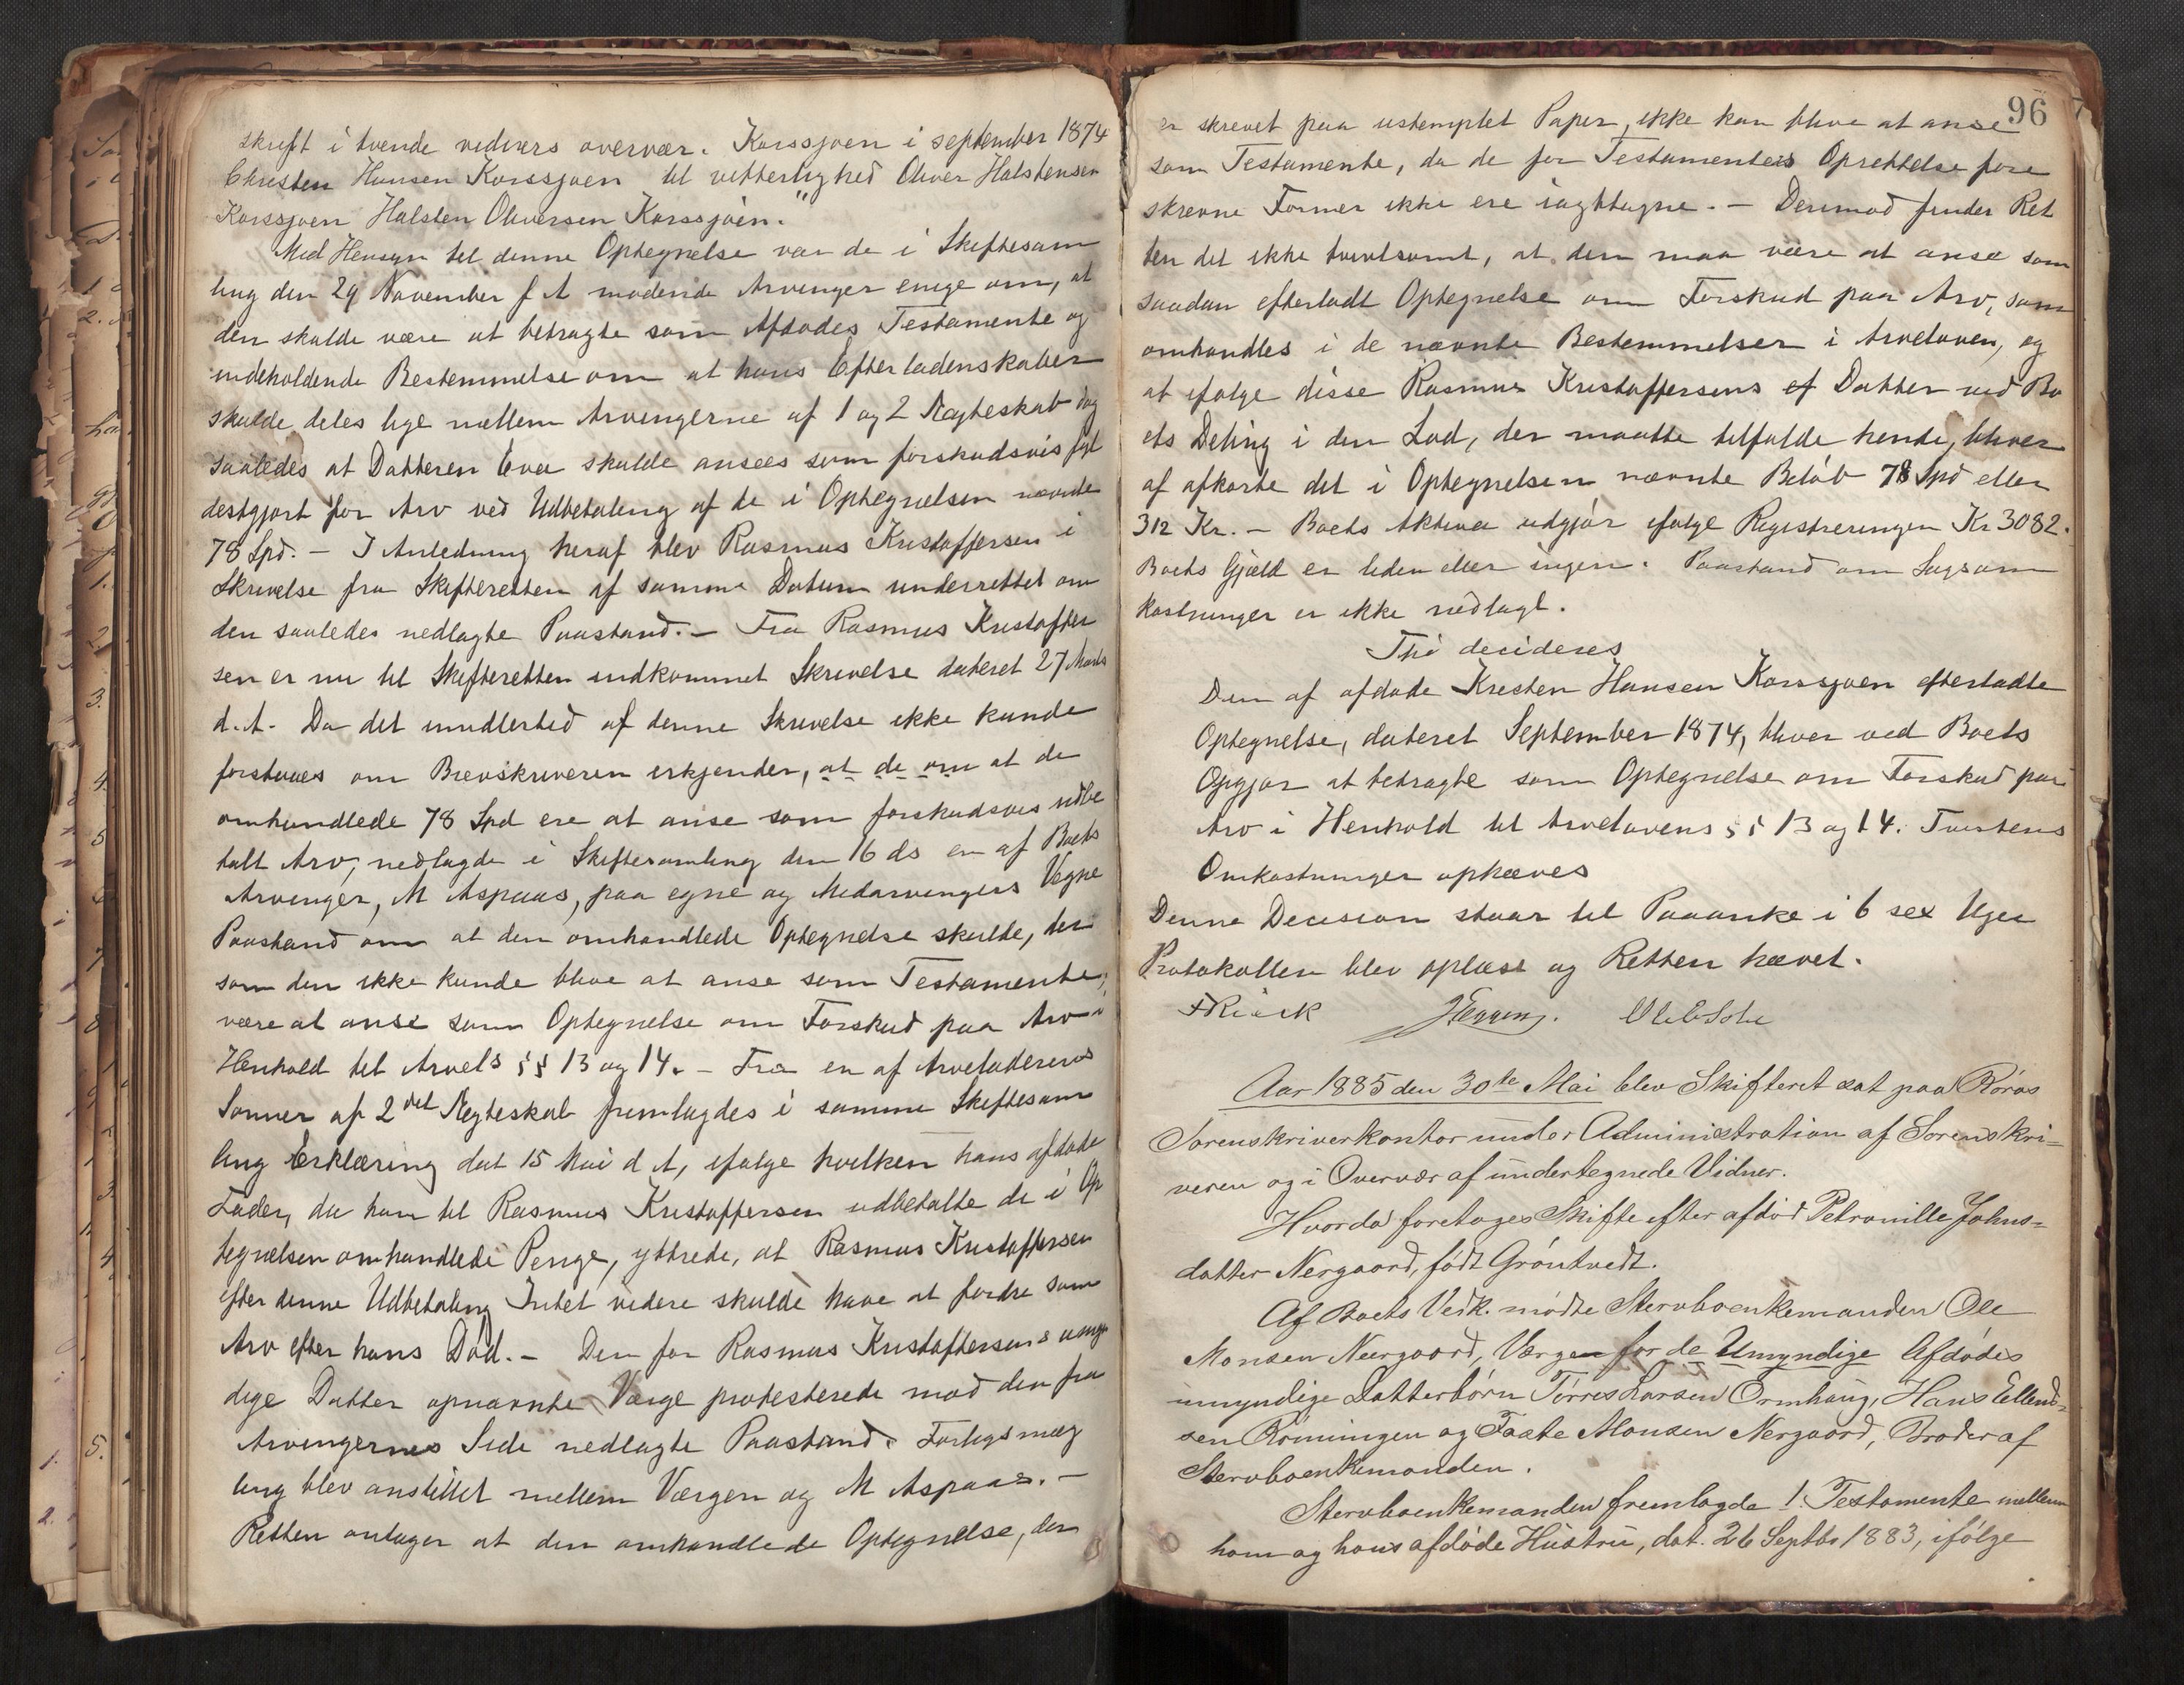 skrift i tvende vidners overvær. Korssjøen i september 1874
Christen Hansen Korssjøen til vitterlighed Oliver Halstensen
Korssjøen Halsten Oliversen Korssjøen."
Med Hensyn til denne Optegnelse var de i Skiftesam
ling den 29 November f A mødende Arvinger enige om, at
den skulde være at betragte som Afdødes Testamente og
indeholdende Bestemmelse om at hans Efterladenskaber
skulde deles lige mellem Arvingerne af 1 og 2 Ægteskab dog
saaledes at Datteren Eva skulde ansees som forskudsvis fyl
destgjort for Arv ved Udbetaling af de i Optegnelsen nævnte
78 Spd. – I Anledning heraf blev Rasmus Kristoffersen i
Skrivelse fra Skifteretten af samme Datum underrettet om
den saaledes nedlagte Paastand. – Fra Rasmus Kristoffer
sen er nu til Skifteretten indkommet Skrivelse dateret 27 Marts
d. A. Da det imidlertid af denne Skrivelse ikke kunde
forstaaes om Brevskriveren erkjender, at de om at de
omhandlede 78 Spd ere at anse som forskudsvis udbe
talt Arv, nedlagde i Skiftesamling den 16 ds en af Boets
Arvinger, M Aspaas, paa egne og Medarvingers Vegne
Paastand om at den omhandlede Optegnelse skulde, der
som den ikke kunde blive at anse som Testamente,
være at anse som Optegnelse om Forskud paa Arv i
Henhold til Arvels §§ 13 og 14. – Fra en af Arveladerens
Sønner af 2det Ægteskab fremlagdes i samme Skiftesam
ling Erklæring dat 15 Mai d A, ifølge hvilken hans afdøde
Fader, da han til Rasmus Kristoffersen udbetalte de i Op
tegnelsen omhandlede Penge, yttrede, at Rasmus Kristoffersen
efter denne Udbetaling Intet videre skulde have at fordre som
Arv efter hans Død. – Den for Rasmus Kristoffersens umyn
dige Datter opnævnte Værge protesterede mod den fra
Arvingernes Side nedlagte Paastand. Forligsmæg
ling blev anstillet mellem Værgen og M Aspaas. –
Retten antager at den omhandlede Optegnelse, der
96
er skrevet paa ustemplet Papir, ikke kan blive at anse
som Testamente, da de for Testamenters Oprettelse fore
skrevne Former ikke ere iagttagne. – Derimod finder Ret
ten det ikke tvivlsomt, at den maa være at anse som
saadan efterladt Optegnelse om Forskud paa Arv, som
omhandles i de nævnte Bestemmelser i Arveloven, og
at ifølge disse Rasmus Kristoffersens ef Datter ved Bo
ets Deling i den Lod, der maatte tilfalde hende, bliver
af afkorte det i Optegnelsen nævnte Beløb 78 Spd eller
312 Kr. – Boets Aktiva udgjør ifølge Registreringen Kr 3082.
Boets Gjæld er liden eller ingen. Paastand om Sagsom
kostninger er ikke nedlagt.
Thi decideres
Den af afdøde Kresten Hansen Korssjøen efterladte
Optegnelse, dateret September 1874, bliver ved Boets
Opgjør at betragte som Optegnelse om Forskud paa
Arv i Henhold til Arvelovens §§ 13 og 14. Tvistens
Omkostninger ophæves
Denne Decision staar til Paaanke i 6 sex Uger
Protokollen blev oplæst og Retten hævet.
Aar 1885 den 30te Mai blev Skifteret sat paa Røros
Sorenskriverkontor under Administration af Sorenskri=
veren og i Overvær af undertegnede Vidner.
Hvorda foretoges Skifte efter afdød Petronille Johns=
datter Nergaard, født Grøntvedt.
Af Boets Vedk. mødte Stervboenkemanden Ole
Monsen Neergaard, Værgen for de Umyndige Afdødes
umyndige Datterbørn Tørres Larsen Ormhaug, Hans Ellend=
sen Rønningen og Faste Monsen Nergaard, Broder af
Stervboenkemanden.
Stervboenkemanden fremlagde 1. Testamente mellem
ham og hans afdøde Hustru, dat. 26 Septbr 1883, ifølge